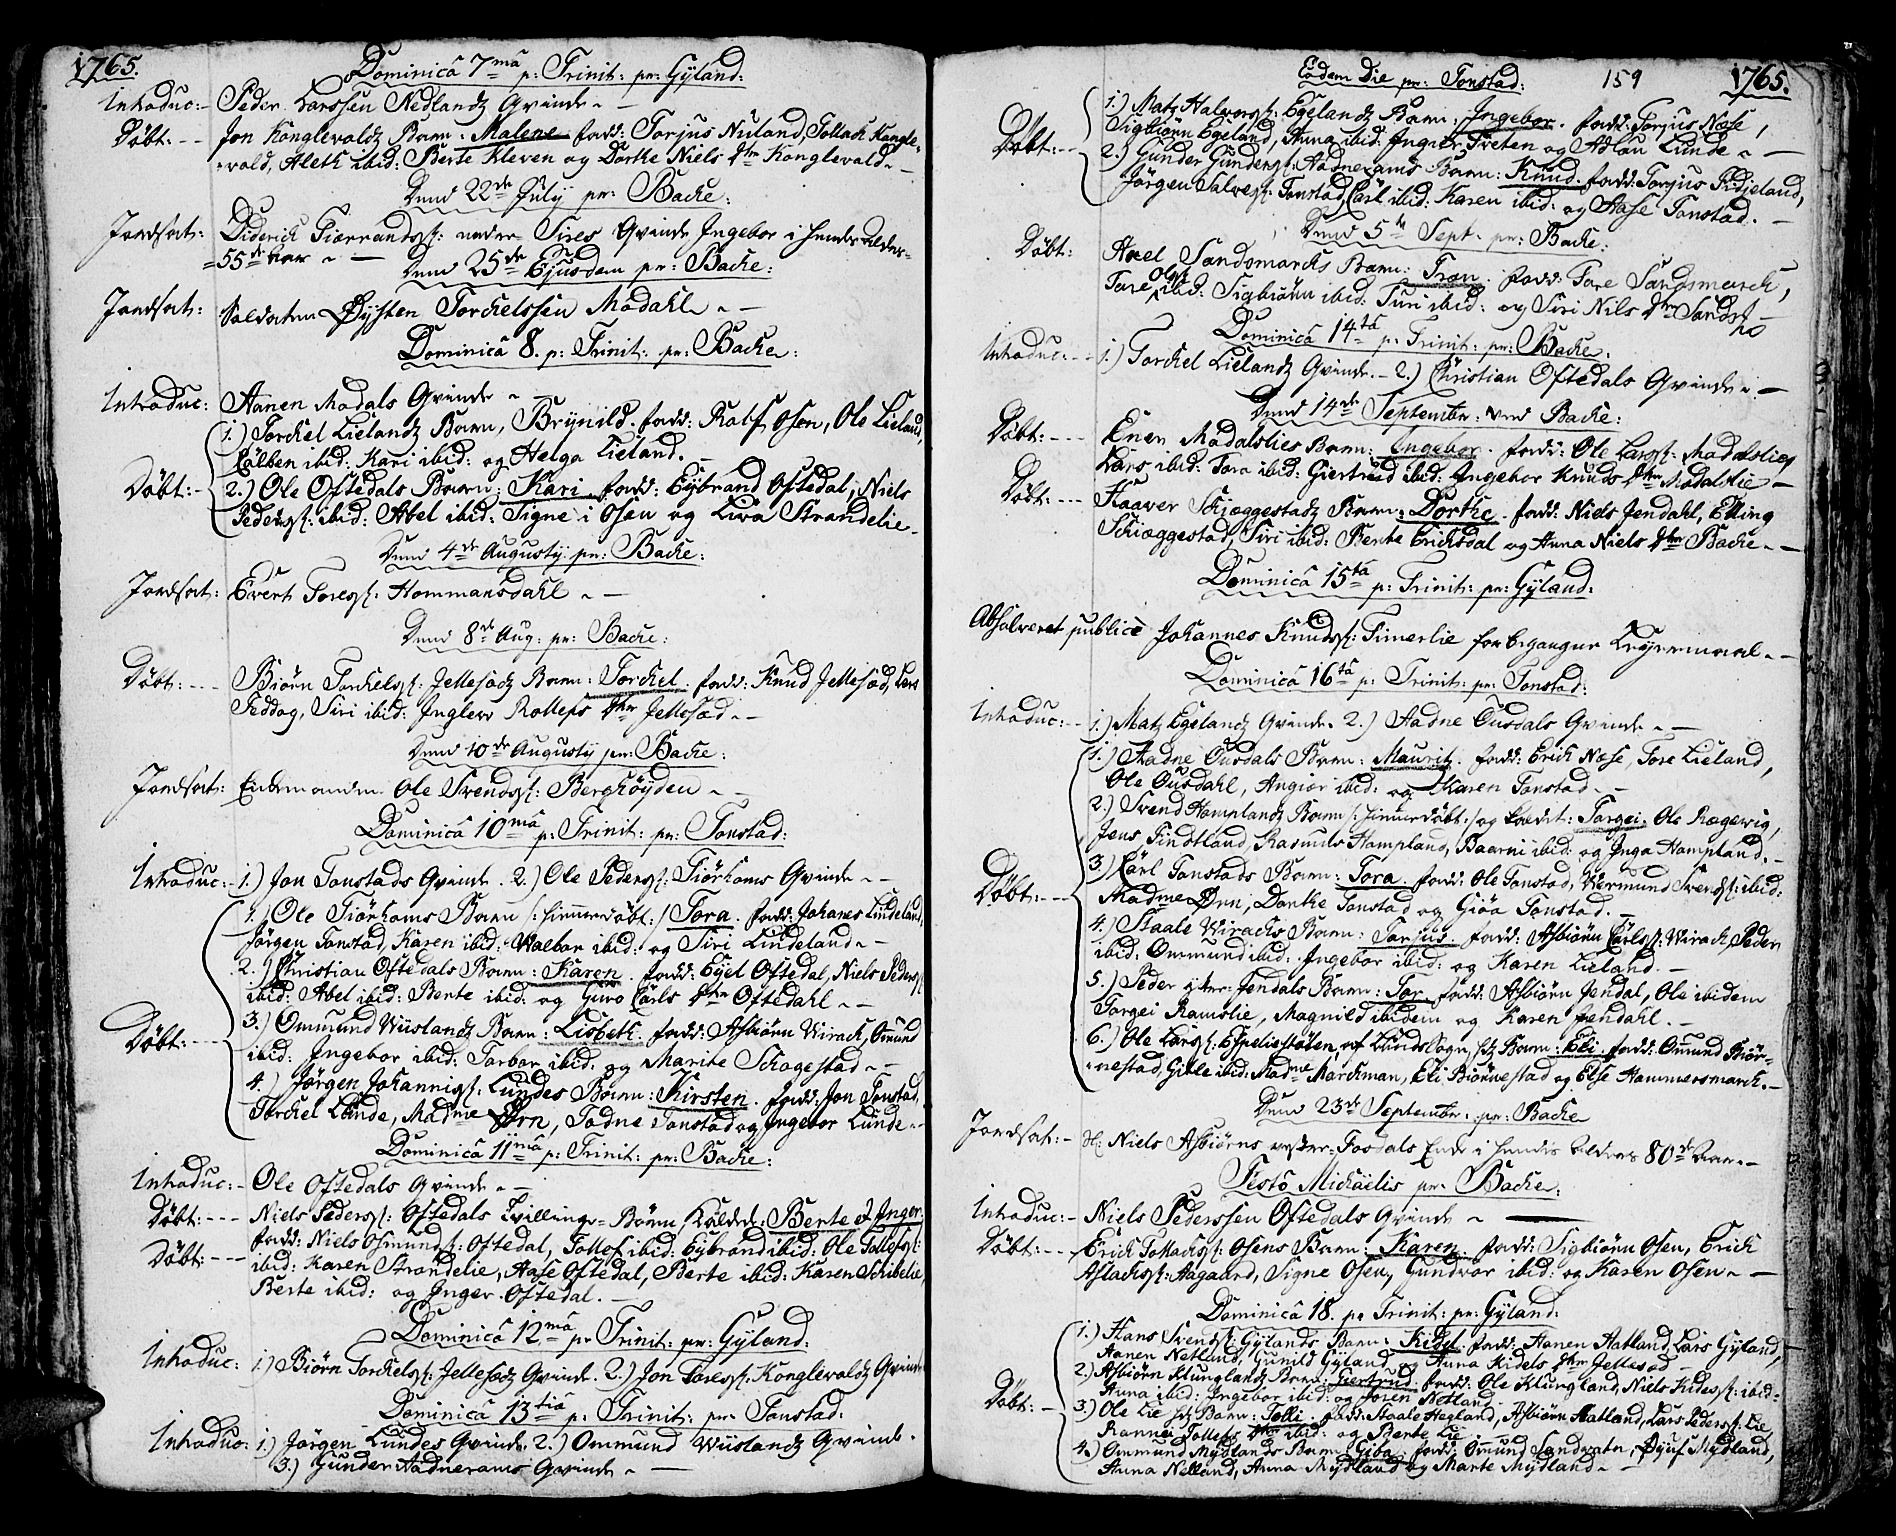 1765.
Dominicâ 7mâ p: Trinit: pr: Gyland:
Introduc: - Peder Larssen Nedlandz Qvinde -
Døbt: - - Jon Konglevoldz Barn: Malene fadd: Torjus Nuland, Tollach Kongle-
vold, Aleth ibid: Berte Kleven og Dorthe Niels Dtr Konglevold -
Dend 22de July pr: Backe:
Jordsat: Diderich Tiorrands: nedre Sires Qvinde Ingebor i hendes Alders
55de Aar -
Dend 25de Ejusdem pr: Backe:
Jordsat: Soldaten Øysten Torchelssen Modahl -
Dominicâ 8. p: Trinit: pr: Backe:
Introduc: Aanen Modals Qvinde -
1.) Torchel Lielandz Barn, Brynild. fadd: Rolf Osen, Ole Lieland,
Colben ibid: Kari ibid: og Helga Lieland.
Døbt: - 2.) Ole Oftedals Barn: Kari fadd: Eybrand Oftedal, Niels
Peders: ibid: Abel ibid: Signe i Osen og Liva Strandelie -
Dend 4de Augusty pr: Backe:
Jordsat: Evert Tores: Hommansdahl -
Dend 8de Aug: pr: Backe:
Døbt: - - - Biørn Torchels: Jellesodz Barn: Torchel. fadd: Knud Jellesod, Lars
Feddog, Siri ibid: Inglew Rolleps Dtr Jellesod -
Dend 10de Augusty pr: Backe:
Jordsat: Enkemanden Ole Svends: Berghøyden -
Dominicâ 10mâ p: Trinit: pr: Tonstad:
Introduc: - 1.) Jon Tonstads Qvinde. 2.) Ole Peders: Tiørhoms Qvinde -
1.) Ole Tiørhoms Barn /: hiemmedøbt :/ Tora. fadd: Johanes Lindeland,
Jørgen Tonstad, Karen ibid: Walbor ibid: og Siri Lindeland -
2.) Christian Oftedals Barn: Karen. fadd: Eyel Oftedal, Niels Peders:
ibid: Abel ibid: Berte ibid: og Guro Carls Dtr Oftedahl -
Døbt: - - - 3.) Ommund Wiislandz Barn: Lisbeth. fadd: Asbiørn Wirach, Omund
ibid: Ingebor ibid: Torbor ibid: og Marite Schogestad -
4.) Jørgen Johannis: Lundes Barn: Kirsten. fadd: Jon Tonstad,
Torchel Lunde, Madme Ørn, Tadne Tonstad og Ingebor Lunde -
Dominicâ 11mâ p: Trinit: pr: Backe:
Introduc: - Ole Oftedals Qvinde -
Døbt: - - - Niels Peders: Oftedals Tvillinge-Børn kaldede: Berte & Inger.
fadd: Niels Osmunds: Oftedal, Tollof ibid: Eybrand ibid: Ole Tollefs:
Døbt: - - - ibid: Karen Strandelie, Aase Oftedal, Berte ibid: Karen Schibelie,
Berte ibid: og Inger Oftedal. -
Dominicâ 12mâ p: Trinit: pr: Gyland:
Introduc: 1.) Biørn Torchels: Jellesodz Qvinde. 2.) Jon Tores: Konglevoldz Qvinde
Dominicâ 13tiâ p: Trinit: pr: Tonstad:
Introduc: 1.) Jørgen Lundes Qvinde. 2.) Ommund Wiislandz Qvinde.
3.) Gunder Aadnerams Qvinde -
Eodem Die pr: Tonstad: 159 1765.
1.) Matz Halvors: Egelandz Barn: Ingebor. fadd: Torjus Næse,
Sigbiørn Egeland, Anna ibid: Inger Treten og Adlau Lunde -
Døbt: - - 2.) Gunder Gunders: Aadnerams Barn: Knud. fadd: Torjus Fidjeland,
Jørgen Salves: Tonstad, Carl ibid: Karen ibid: og Aase Tonstad. -
Dend 5te Sept. pr: Backe:
Døbt: Axel Sandsmarchs Barn: Tron. fadd: Tore Sandsmarch,
Tore Ols: ibid: Sigbiørn ibid: Turi ibid: og Siri Nils Dtr Sands-
Dominicâ 14tâ p: Trinit: pr: Backe:
Introduc: - - 1.) Torchel Lielandz Qvinde. - 2.) Christian Oftedals Qvinde -
Dend 14de Septembr: ved Backe:
Døbt: - - - Enen Modalslies Barn: Ingebor. fadd: Ole Lars: Modalslien
Lars ibid: Tora ibid: Giertrud ibid: Ingebor Knuds Dtr Modalslie -
Døbt: - - - Haaver Schjæggestadz Barn: Dorthe. fadd: Niels Jendahl, Elling
Schiæggestad, Siri ibid: Bente Erichsdal og Anna Niels Dtr Backe -
Dominicâ 15tâ p: Trinit: pr: Gyland:
Absolveret publicè Johannes Knuds: Timerlie for begangne Leyermaal -
Dominicâ 16tâ p: Trinit: pr: Tonstad:
Introduc: - - 1.) Matz Egelandz Qvinde 2.) Aadne Ousdals Qvinde -
1.) Aadne Ousdals Barn: Mauritz. fadd: Erich Næse, Tore Lieland,
Ole Ousdahl, Angior ibid: og Karen Tonstad -
2.) Svend Hamplandz Barn /: hiemmedøbt :/ og kaldet: Torgei. Ole Rægevig,
Jens Findtland, Rasmus Hampland, Baarni ibid: og Inga Hampland. -
3.) Carl Tonstads Barn: Tora. fadd: Ole Tonstad, Wermund Svends: ibid:
Døbt: - - - Madme Ørn, Dorthe Tonstad og Giøa Tonstad. -
4.) Staale Wirachs Barn: Torjus. fadd: Asbiørn Carls: Wirach, Peder
ibid: Ommund ibid: Ingebor ibid: og Karen Lieland. -
5.) Peder yttre Jendals Barn: Tor. fadd: Asbiørn Jendal, Ole ibidem
Torgei Ramslie, Magnild ibidem og Karen Jendahl. -
6.) Ole Lars: Espeliestølen, af Lunds Sogn, Barn: Eli. fadd: Omund Biør-
nestad, Gitle ibid: Madme Marchman, Eli Biørnestad og Else Hammersmarch. -
Dend 23de Septembr: pr: Backe
Jordsat: - Niels Asbiørns Fosdals Enke i hendis Alders 80de Aar -
Festo Michaëlis pr: Backe:
Introduc: - Niels Pederssen Oftedals Qvinde -
Døbt: - - - Erich Tollachs: Osens Barn: Karen. fadd: Sigbiørn Osen, Erich
Aslachs: Aagaard, Signe Osen, Gundvor ibid: og Karen Osen -
Dominicâ 18. p: Trinit: pr: Gyland:
1.) Hans Svends: Gylands Barn: Kidel. fadd: Aanen Aatland, Lars Gyland,
Aanen Netland, Gunild Gyland og Anna Kidels Dtr Jellesod -
2.) Asbiørn Klunglandz Barn: Giertrud. fadd: Ole Klungland, Niels Kidels: ibid-
Døbt: - Anna ibid: Ingebor ibid: og Joren Netland.
3.) Ole Lie Barn: Tolli. fadd: Staale Hegland, Asbiørn Aatland, Lars Peders: Lie,
Rannei Tollefs Dtr ibid: og Berte Lie -
4.) Ommund Mydlands Barn: Giba. fadd: Omund Sandvatn, Mydland,
Anna Netland, Anna Mydland og Marte Mydland -